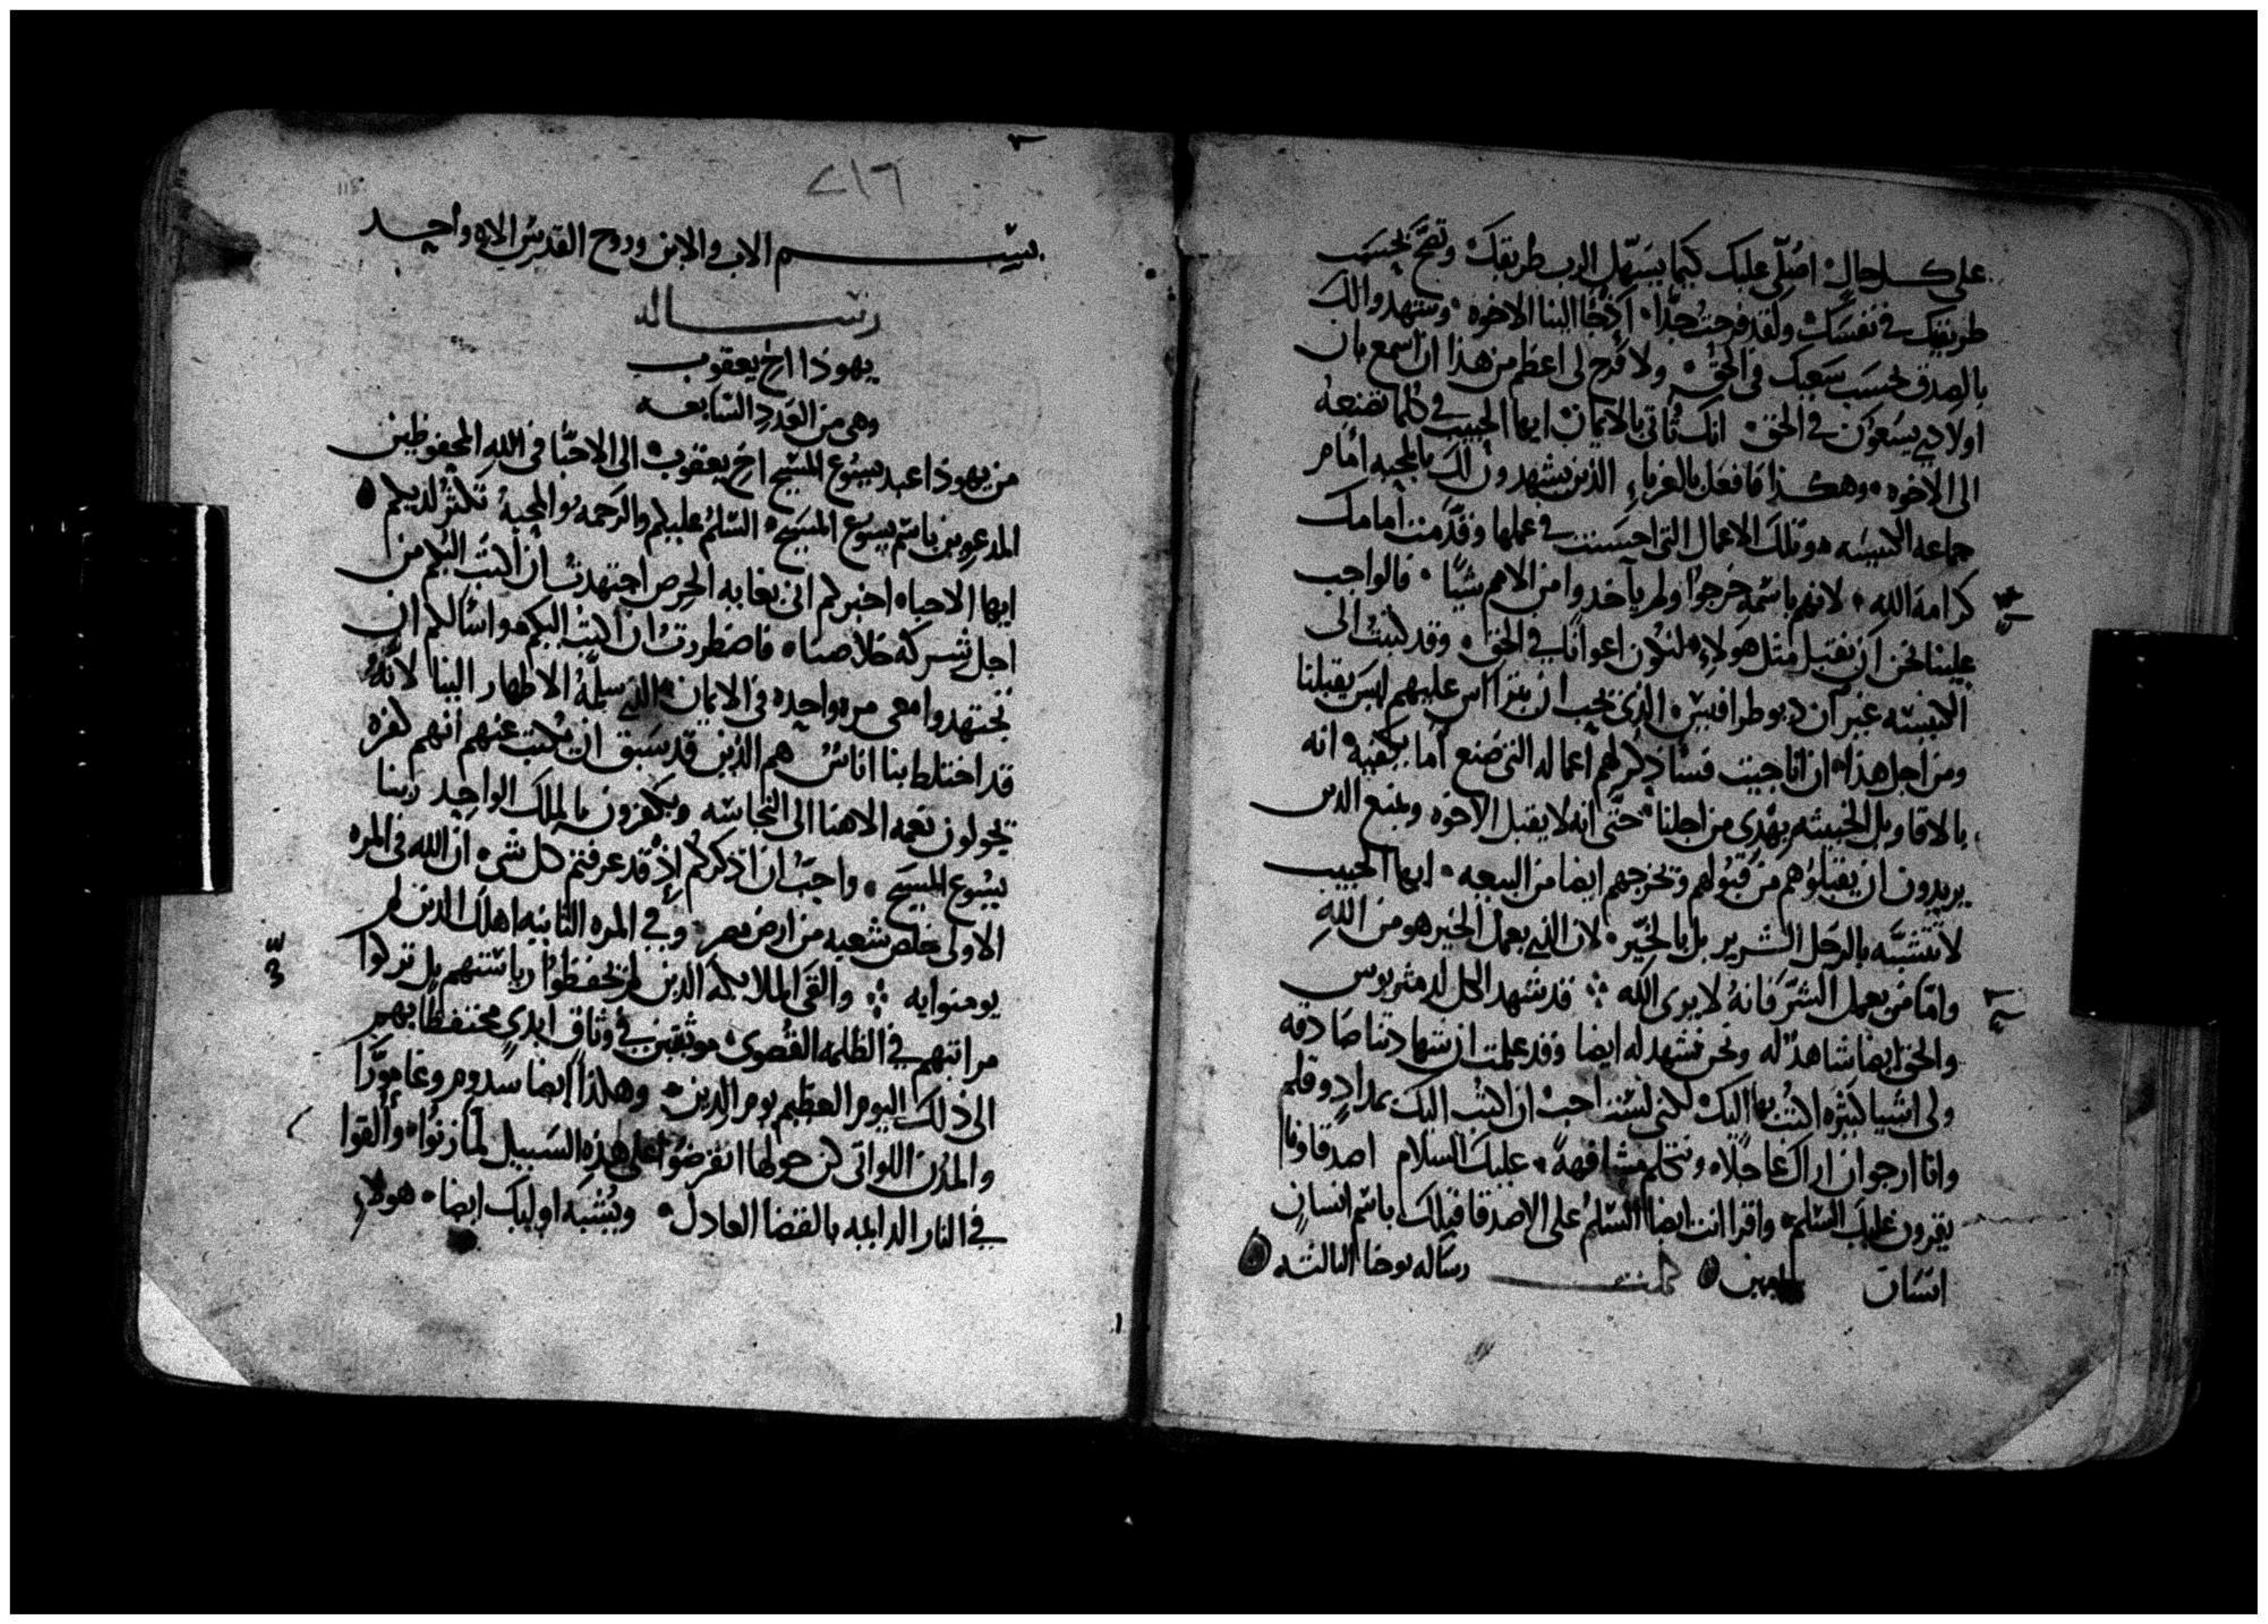 على كل حال اصلى عليك كيما يسهل الرب طريقك وتصح بحسب
طريقك في نفسك ولقد فرحت جدا اذ جا الينا الاخوه وشهدوا لك
بالصدق بحسب سعيك في الحق ولا فرح لى اعظم من هذا ان اسمع بان
اولادي يسعون في الحق انك تاتى بالايمان ايها الحبيب في كلما تصنعه
الى الاخوه وهكذا فافعل بالغرباء الذين يشهدون لك بالمحبه امام
جماعه الكنيسه وتلك الاعمال التى احسنت في عملها وقدمت امامك
كرامة الله لانهم باسمه خرجوا ولم ياخدوا من الامم شيا فالواجب
علينا نحن ان نقبل مثل هولاء لنكون اعوانا في الحق وقد كتبت الى
الكنيسه غير ان ديوطرافيس الذى يحب ان يتراس عليهم ليس يقبلنا
ومن اجل هذا ان انا جيت فساذكر لهم اعماله التى صنع اما يكفيه انه
بالاقاويل الخبيثه يهدى من اجلنا حتى انه لا يقبل الاخوه ويمنع الدين
يريدون ان يقبلوهم من قبولهم ويخرجهم ايضا من البيعه ايها الحبيب
لا تتشبه بالرجل الشرير بل بالخير لان الذي يعمل الخير هو من الله
واما من يعمل الشر فانه لا يرى الله قد شهد الكل لدمثريوس
والحق ايضا شاهد له ونحن نشهد له ايضا وقد علمت ان شهادتنا صادقه
ولى اشيا كثيره اكتب بها اليك لكنى لست احب ان اكتب اليك بمداد وقلم
وانا ارجو ان اراك عاجلا ونتكلم مشافهة عليك السلام اصدقاونا
يقرون عليك السلم واقرا انت ايضا السلم على الاصدقا قبلك باسم انسان
انسان امين كملت رساله يوحنا الثالثه
٧١٦
115
بسم الاب والابن وروح القدس الاه واحد
رساله
يهوذا اخ يعقوب
وهى من العدد السابعه
من يهوذا عبد يسوع المسيح اخ يعقوب الى الاحبا في الله المحفوظين
المدعوين باسم يسوع المسيح السلم عليكم والرحمه والمحبة تكثر لديكم
ايها الاحباء اخبركم انى بغايه الحرص اجتهدت ان اكتب اليكم من
اجل شركة خلاصنا فاضطررت ان اكتب اليكم واسالكم ان
تجتهدوا معى مره واحده في الايمان الذي سلمه الاطهار الينا لانه
قد اختلط بنا اناس هم الذين قد سبق ان يكتب عنهم انهم كفره
يحولون نعمه الاهنا الى النجاسه ويكفرون بالملك الواحد ربنا
يسوع المسيح واحب ان اذكركم اذ قد عرفتم كل شى ان الله في المره
الاولى خلص شعبه من ارض مصر وفي المره الثانيه اهلك الدين لم
يومنوا به والقى الملايكه الدين لم يحفظوا رياستهم بل تركوا
مراتبهم في الظلمه القصوى موثقين في وثاق ابدى محتفظا بهم
الى ذلك اليوم العظيم يوم الدين وهكذا ايضا سدوم وغامورا
والمدن اللواتى كن حولها انقرضوا على هذه السبيل لما زنوا والقوا
في النار الدايمه بالقضا العادل ويشبه اوليك ايضا هولاء